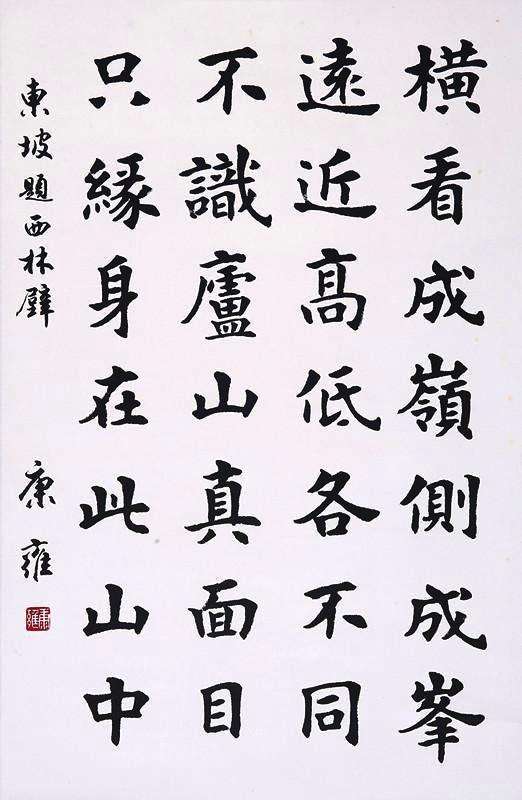 橫看成嶺側成峯
遠近高低各不同
不識廬山真面目
只緣身在此山中
東坡題西林壁
康雍